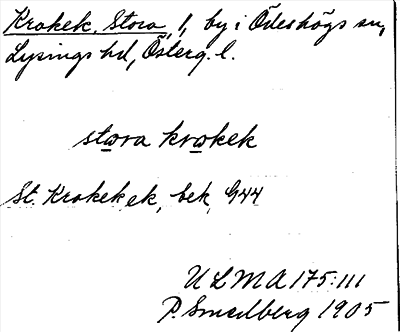 Krokek, Stora, 1, by i Ödeshögs sn,
Lysings hd, Österg. l.
stora krokek
St. Krokek, ek, bek, G44
ULMA 175:111
P. Smedberg 1905